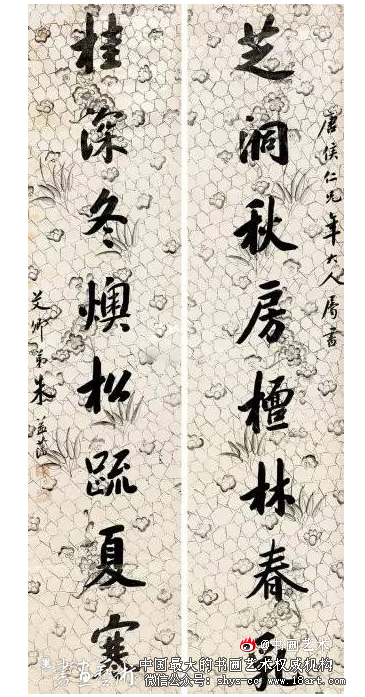 唐侯仁兄年大人属書
芝洞秋房檀林春
桂深冬燠松疏夏寒
艾卿弟朱益藩
@书画艺术
中国最大的书画艺术权威机构
微信公众号：shys-cq www.18art.com